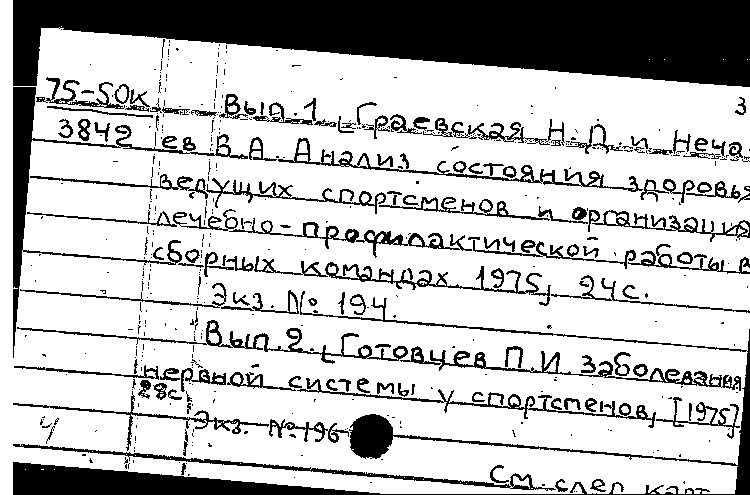 3
75-50к Вып.1. [Граевская Н.Д. и Неча-
3842 ев В.А. Анализ состояния здоровья
ведущих спортсменов и организация
лечебно-профилактической работы в
сборных командах. 1975, 24с.
Экз. № 194.
Вып.2. [Готовцев П.И. Заболевания
нервной системы у спортсменов, [1975],
28с.
Экз. № 196
4
См. след. карт.